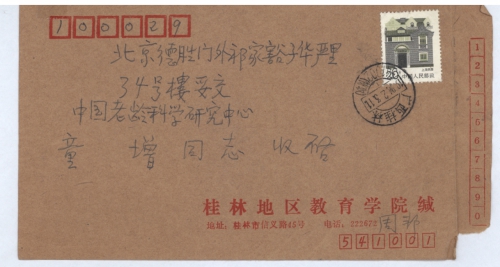 100029
北京德胜门外祁家豁子华严里
34号楼妥交
中国老龄科学研究中心
童 增 同志 收启
桂林地区教育学院缄
地址:桂林市信义路45号 电话:222672
541001